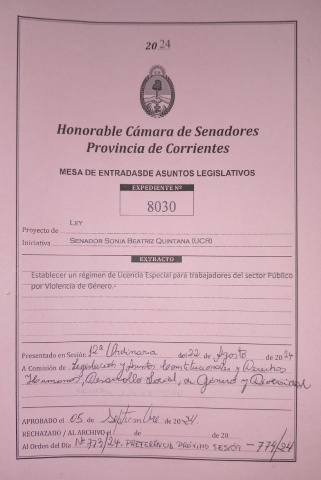 2024
Honorable Cámara de Senadores
Provincia de Corrientes
MESA DE ENTRADASDE ASUNTOS LEGISLATIVOS
EXPEDIENTE Nº
8030
Proyecto de LEY
Iniciativa SENADOR SONIA BEATRIZ QUINTANA (UCR)
EXTRACTO
Establecer un régimen de Licencia Especial para trabajadores del sector Público
por Violencia de Género.-
Presentado en Sesión 12ª Ordinaria del 22 de Agosto de 2024
A Comisión de Legislación y Asuntos Constitucionales y Derechos
Humanos, Desarrollo Social, de Género y Diversidad
APROBADO el 05 de Septiembre de 2024.
RECHAZADO / AL ARCHIVO el de de 20
Al Orden del Día Nº 773/24. PREFERENCIA PRÓXIMO SESIÓN - 774/24